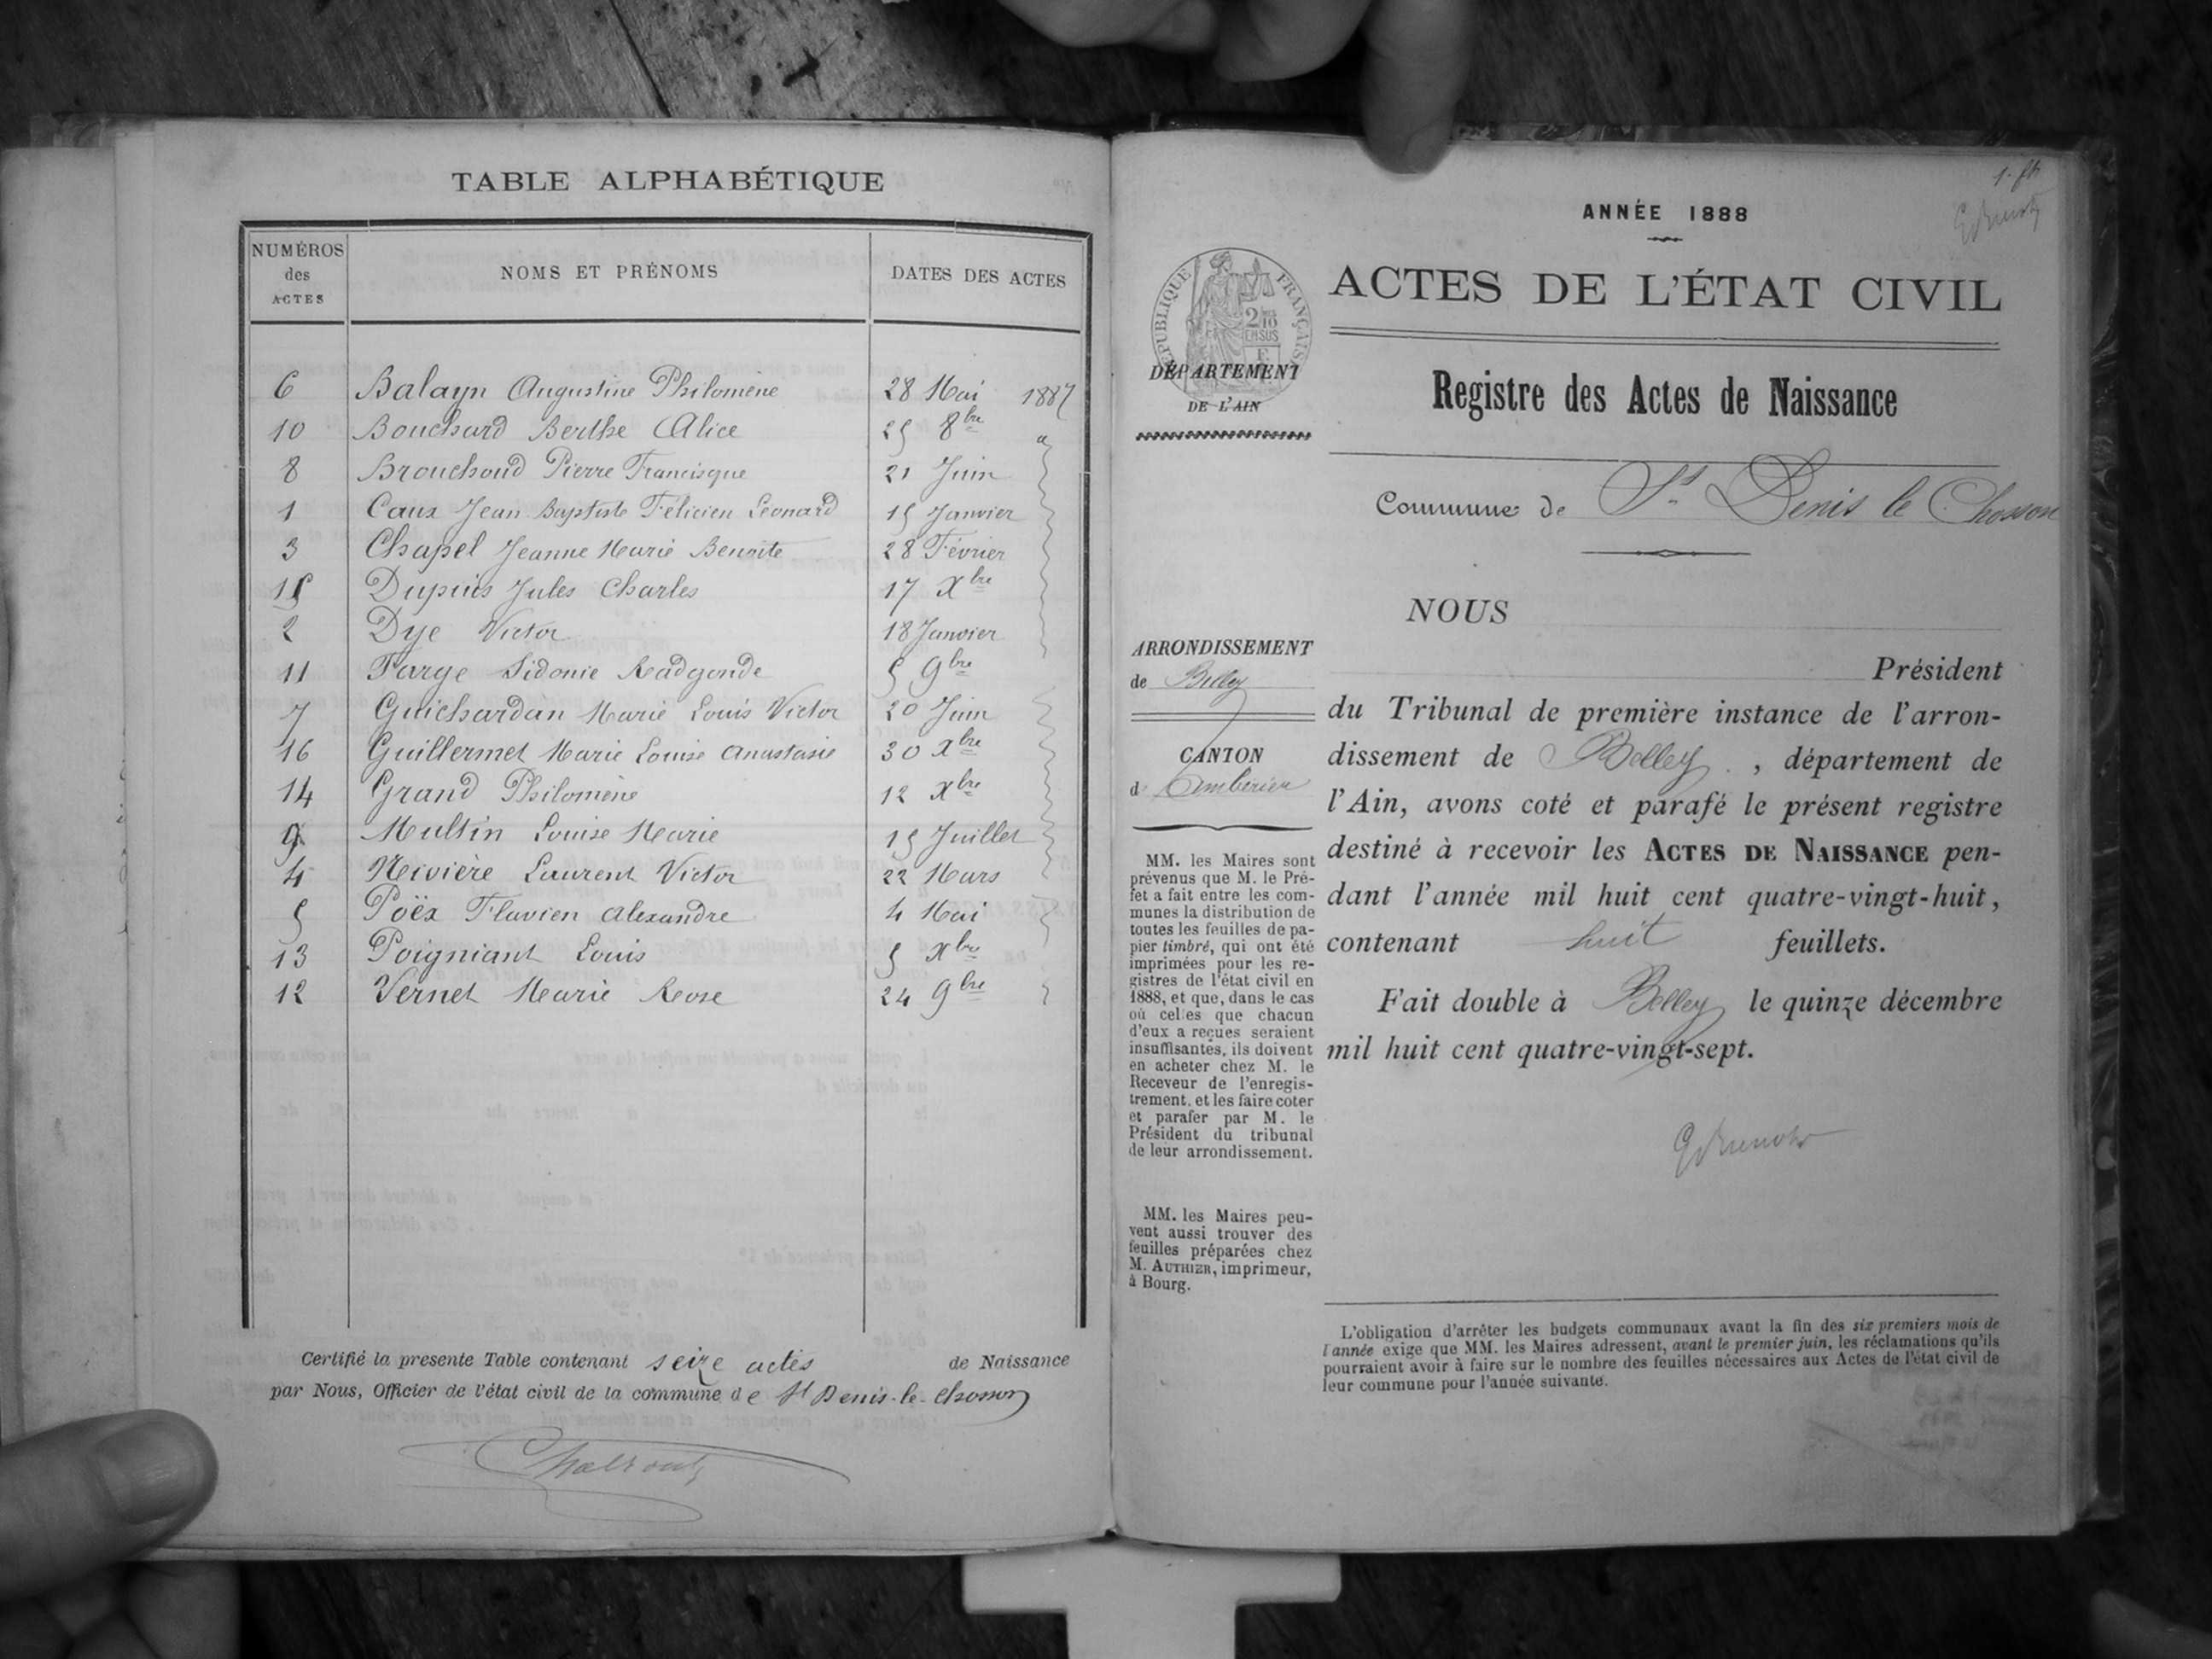 TABLE ALPHABÉTIQUE
NUMÉROS des ACTES
NOMS ET PRÉNOMS
DATES DES ACTES
6 Balayn Augustine Philomène 28 Mai 1887
10 Bouchard Berthe Alice 25 8bre "
8 Brouchoud Pierre Francisque 21 Juin
1 Caux Jean Baptiste Félicien Léonard 15 Janvier
3 Chapel Jeanne Marie Benoite 28 Février
15 Dupuis Jules Charles 17 Xbre
2 Dye Victor 18 Janvier
11 Farge Sidonie Radgonde 5 9bre
7 Guichardan Marie Louis Victor 20 Juin
16 Guillermet Marie Louise Anastasie 30 Xbre
14 Grand Philomène 12 Xbre
9 Multin Louise Marie 15 Juillet
4 Nivière Laurent Victor 22 Mars
5 Poëx Flavien Alexandre 4 Mai
13 Poigniant Louis 5 Xbre
12 Vernet Marie Rose 24 9bre
Certifié la presente Table contenant seize actes de Naissance
par Nous, Officier de l'état civil de la commune de St Denis-le-Chosson
1. ft
ANNÉE 1888
RÉPUBLIQUE FRANÇAISE
2 10 EN SUS
ACTES DE L'ÉTAT CIVIL
DÉPARTEMENT
DE L'AIN
Registre des Actes de Naissance
Commune de St Denis le Chosson
NOUS
Président
du Tribunal de première instance de l'arron-
dissement de Belley, département de
l'Ain, avons coté et parafé le présent registre
destiné à recevoir les ACTES DE NAISSANCE pen-
dant l'année mil huit cent quatre-vingt-huit,
contenant huit feuillets.
Fait double à Belley le quinze décembre
mil huit cent quatre-vingt-sept.
ARRONDISSEMENT
de Belley
CANTON
d' Ambérieu
MM. les Maires sont
prévenus que M. le Pré-
fet a fait entre les com-
munes la distribution de
toutes les feuilles de pa-
pier timbré, qui ont été
imprimées pour les re-
gistres de l'état civil en
1888, et que, dans le cas
où celles que chacun
d'eux a reçues seraient
insuffisantes, ils doivent
en acheter chez M. le
Receveur de l'enregis-
trement, et les faire coter
et parafer par M. le
Président du tribunal
de leur arrondissement.
MM. les Maires peu-
vent aussi trouver des
feuilles préparées chez
M. AUTHIER, imprimeur,
à Bourg.
L'obligation d'arrêter les budgets communaux avant la fin des six premiers mois de
l'année exige que MM. les Maires adressent, avant le premier juin, les réclamations qu'ils
pourraient avoir à faire sur le nombre des feuilles nécessaires aux Actes de l'état civil de
leur commune pour l'année suivante.